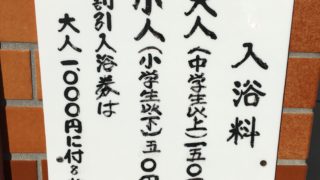 入浴料
大人(中学生以上)一五〇
小人(小学生以下)五〇円
割引入浴券は
大人一〇〇〇円に付8